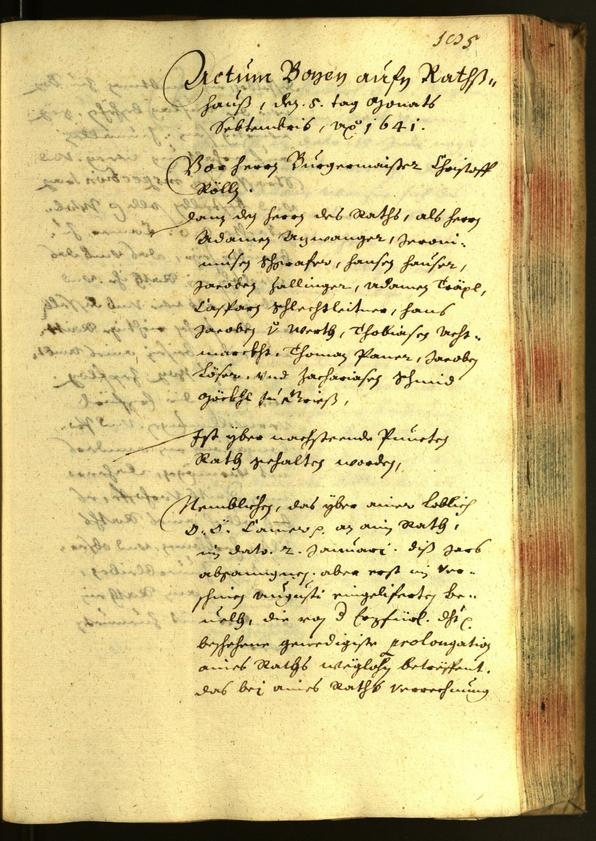 105
Actum Bozen aufm Rathß-
hauß, den 5. tag Monats
Septembris, Ao 1641.
Vor herrn Burgermaister Christoff
Röll.
dann den herrn des Raths, als herrn
Adamen Anwanger, Jeroni-
musen Schrafer, Hansen Hauser,
Jacoben Hallinger, Adamen Träpl,
Casparn Schlechtleitner, Hans
Jacoben v. Werth, Thobiasen Acht-
marckht, Thoman Paner, Jacoben
Löser, und Zachariasen Schmid
zu Grieß,
Ist yber nachsteende Puncten
Rath gehalten worden,
Nemblichen, das yber ainer Loblich
O. Ö. Camer p. an ain Rath,
in dato. 2. Januari. diß Jars
abgangnen, aber erst im ver-
schinen Augusti eingeliferten be-
uelch, die von d. Erzfürl. Dht.
beschehene genedigiste prolongation
aines Raths betreffent.
das bei aines Raths verrechnung